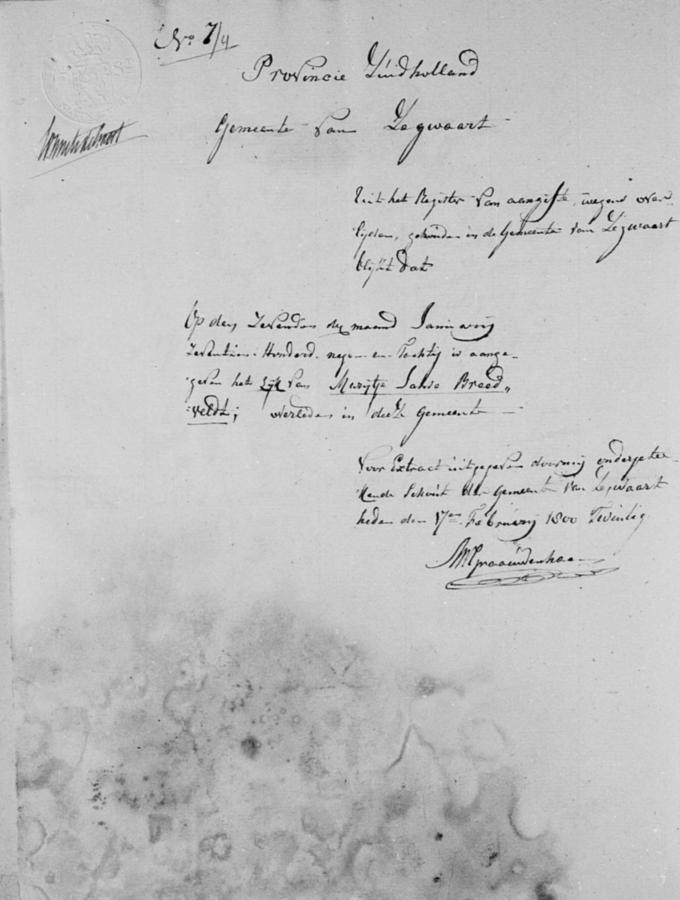 No 7/4
Provincie Zuidholland
Gemeente van Zegwaart
Uit het Register van aangifte wegens over
lyden, gehouden in de Gemeente van Zegwaart
blykt dat
Op den Zevenden der maand Januarij
Zeventien Honderd negen en Tachtig is aange-
geven het Lyk van Marijtje Breed„
veldt; overleden in deeze Gemeente —
Voor Extract uitgegeven door mij ondergete-
kende Schout der Gemeente van Zegwaart
heden den 17en Februarij 1800 Twintig